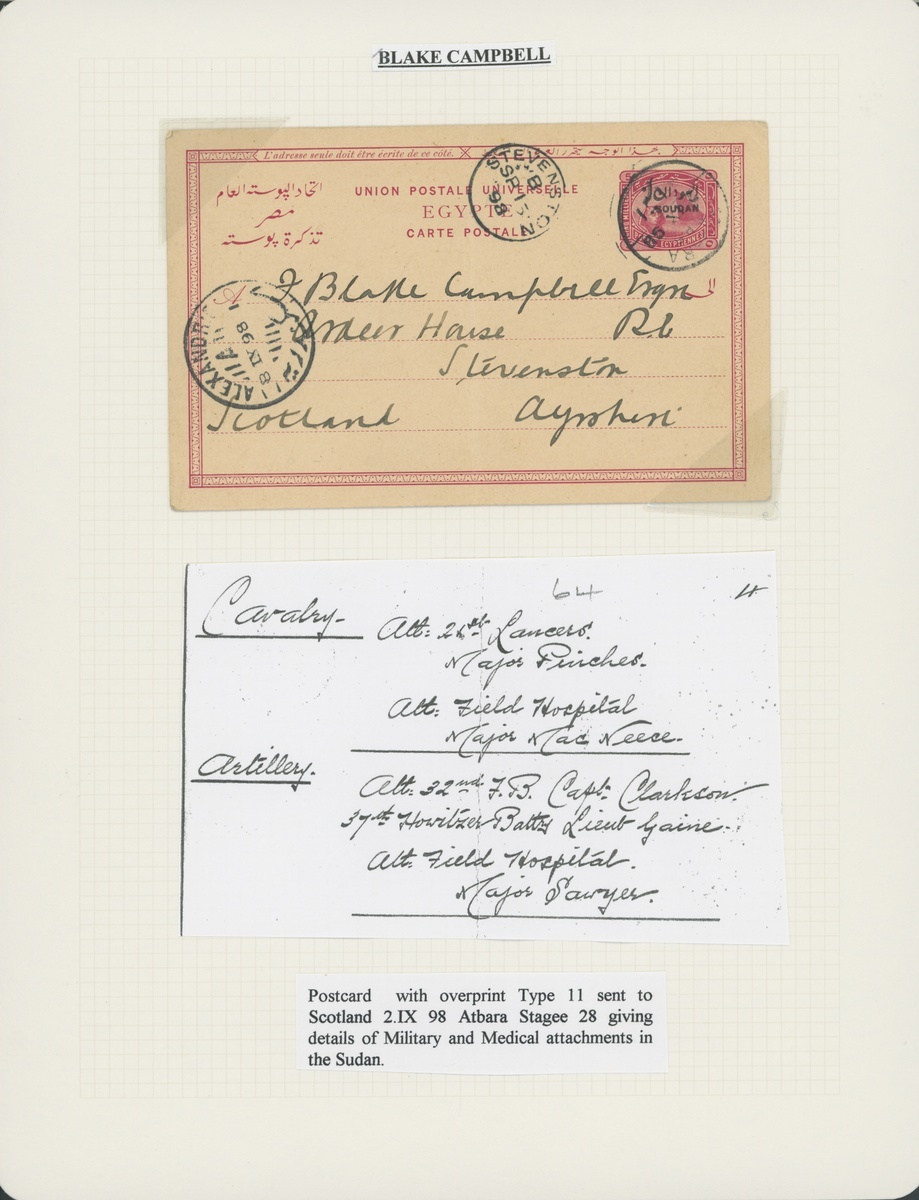 BLAKE CAMPBELL
L'adresse seule doit être ecrite de ce côté.
اتحاد البوستة العام
مصر
تذكرة بوستة
UNION POSTALE UNIVERSELLE
EGYPTE
CARTE POSTALE
STEVENSTON
B
SP 15
98
SOUDAN
ALEXANDRI
8 IX 98
A
F Blake Campbell Esqre
Ardeer House
Stevenston
Scotland Ayrshire
64
Cavalry.
Att: 21st Lancers.
Major Pinches.
Att: Field Hospital
Major Mac Neece.
Artillery.
Att: 32nd F.B. Capt. Clarkson.
37th Howitzer Batty Lieut Gaine.
Att: Field Hospital.
Major Sawyer.
Postcard with overprint Type 11 sent to
Scotland 2.IX 98 Atbara Stagee 28 giving
details of Military and Medical attachments in
the Sudan.